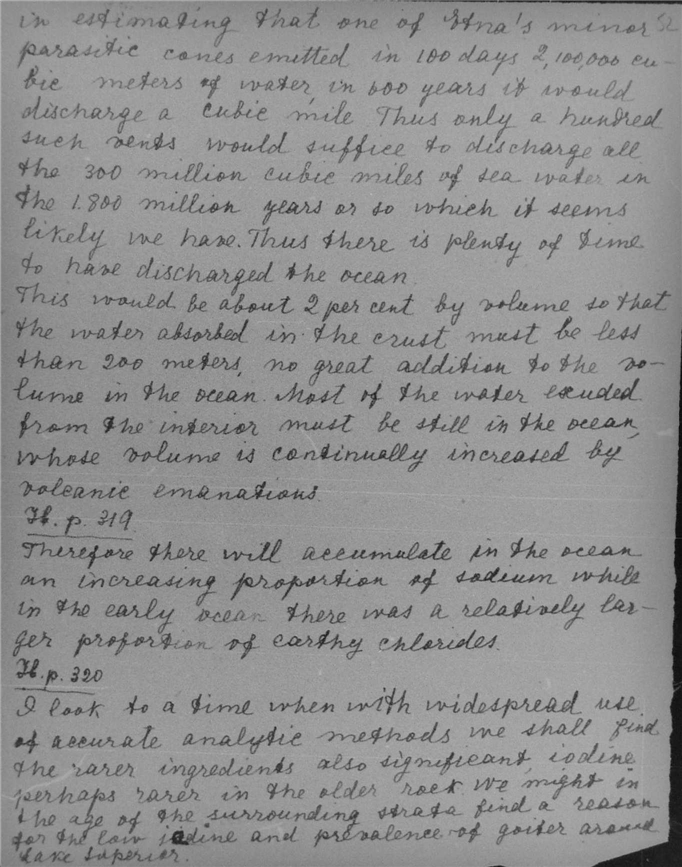 in estimating that one of Etna's minor
parasitic cones emitted in 100 days 2,100,000 cu-
bic meters of water, in 600 years it would
discharge a cubic mile Thus only a hundred
such vents would suffice to discharge all
the 300 million cubic miles of sea water in
the 1.800 million years or so which it seems
likely we have. Thus there is plenty of time
to have discharged the ocean.
This would be about 2 per cent by volume so that
the water absorbed in the crust must be less
than 200 meters, no great addition to the vo-
lume in the ocean. Most of the water exuded
from the interior must be still in the ocean,
whose volume is continually increased by
volcanic emanations.
Ib. p. 319
Therefore there will accumulate in the ocean
an increasing proportion of sodium while
in the early ocean there was a relatively lar-
ger proportion of earthy chlorides.
Ib. p. 320
I look to a time when with widespread use
of accurate analytic methods we shall find
the rarer ingredients also significant, iodine
perhaps rarer in the older rock. We might in
the age of the surrounding strata find a reason
for the low iodine and prevalence of goiter around
Lake Superior.